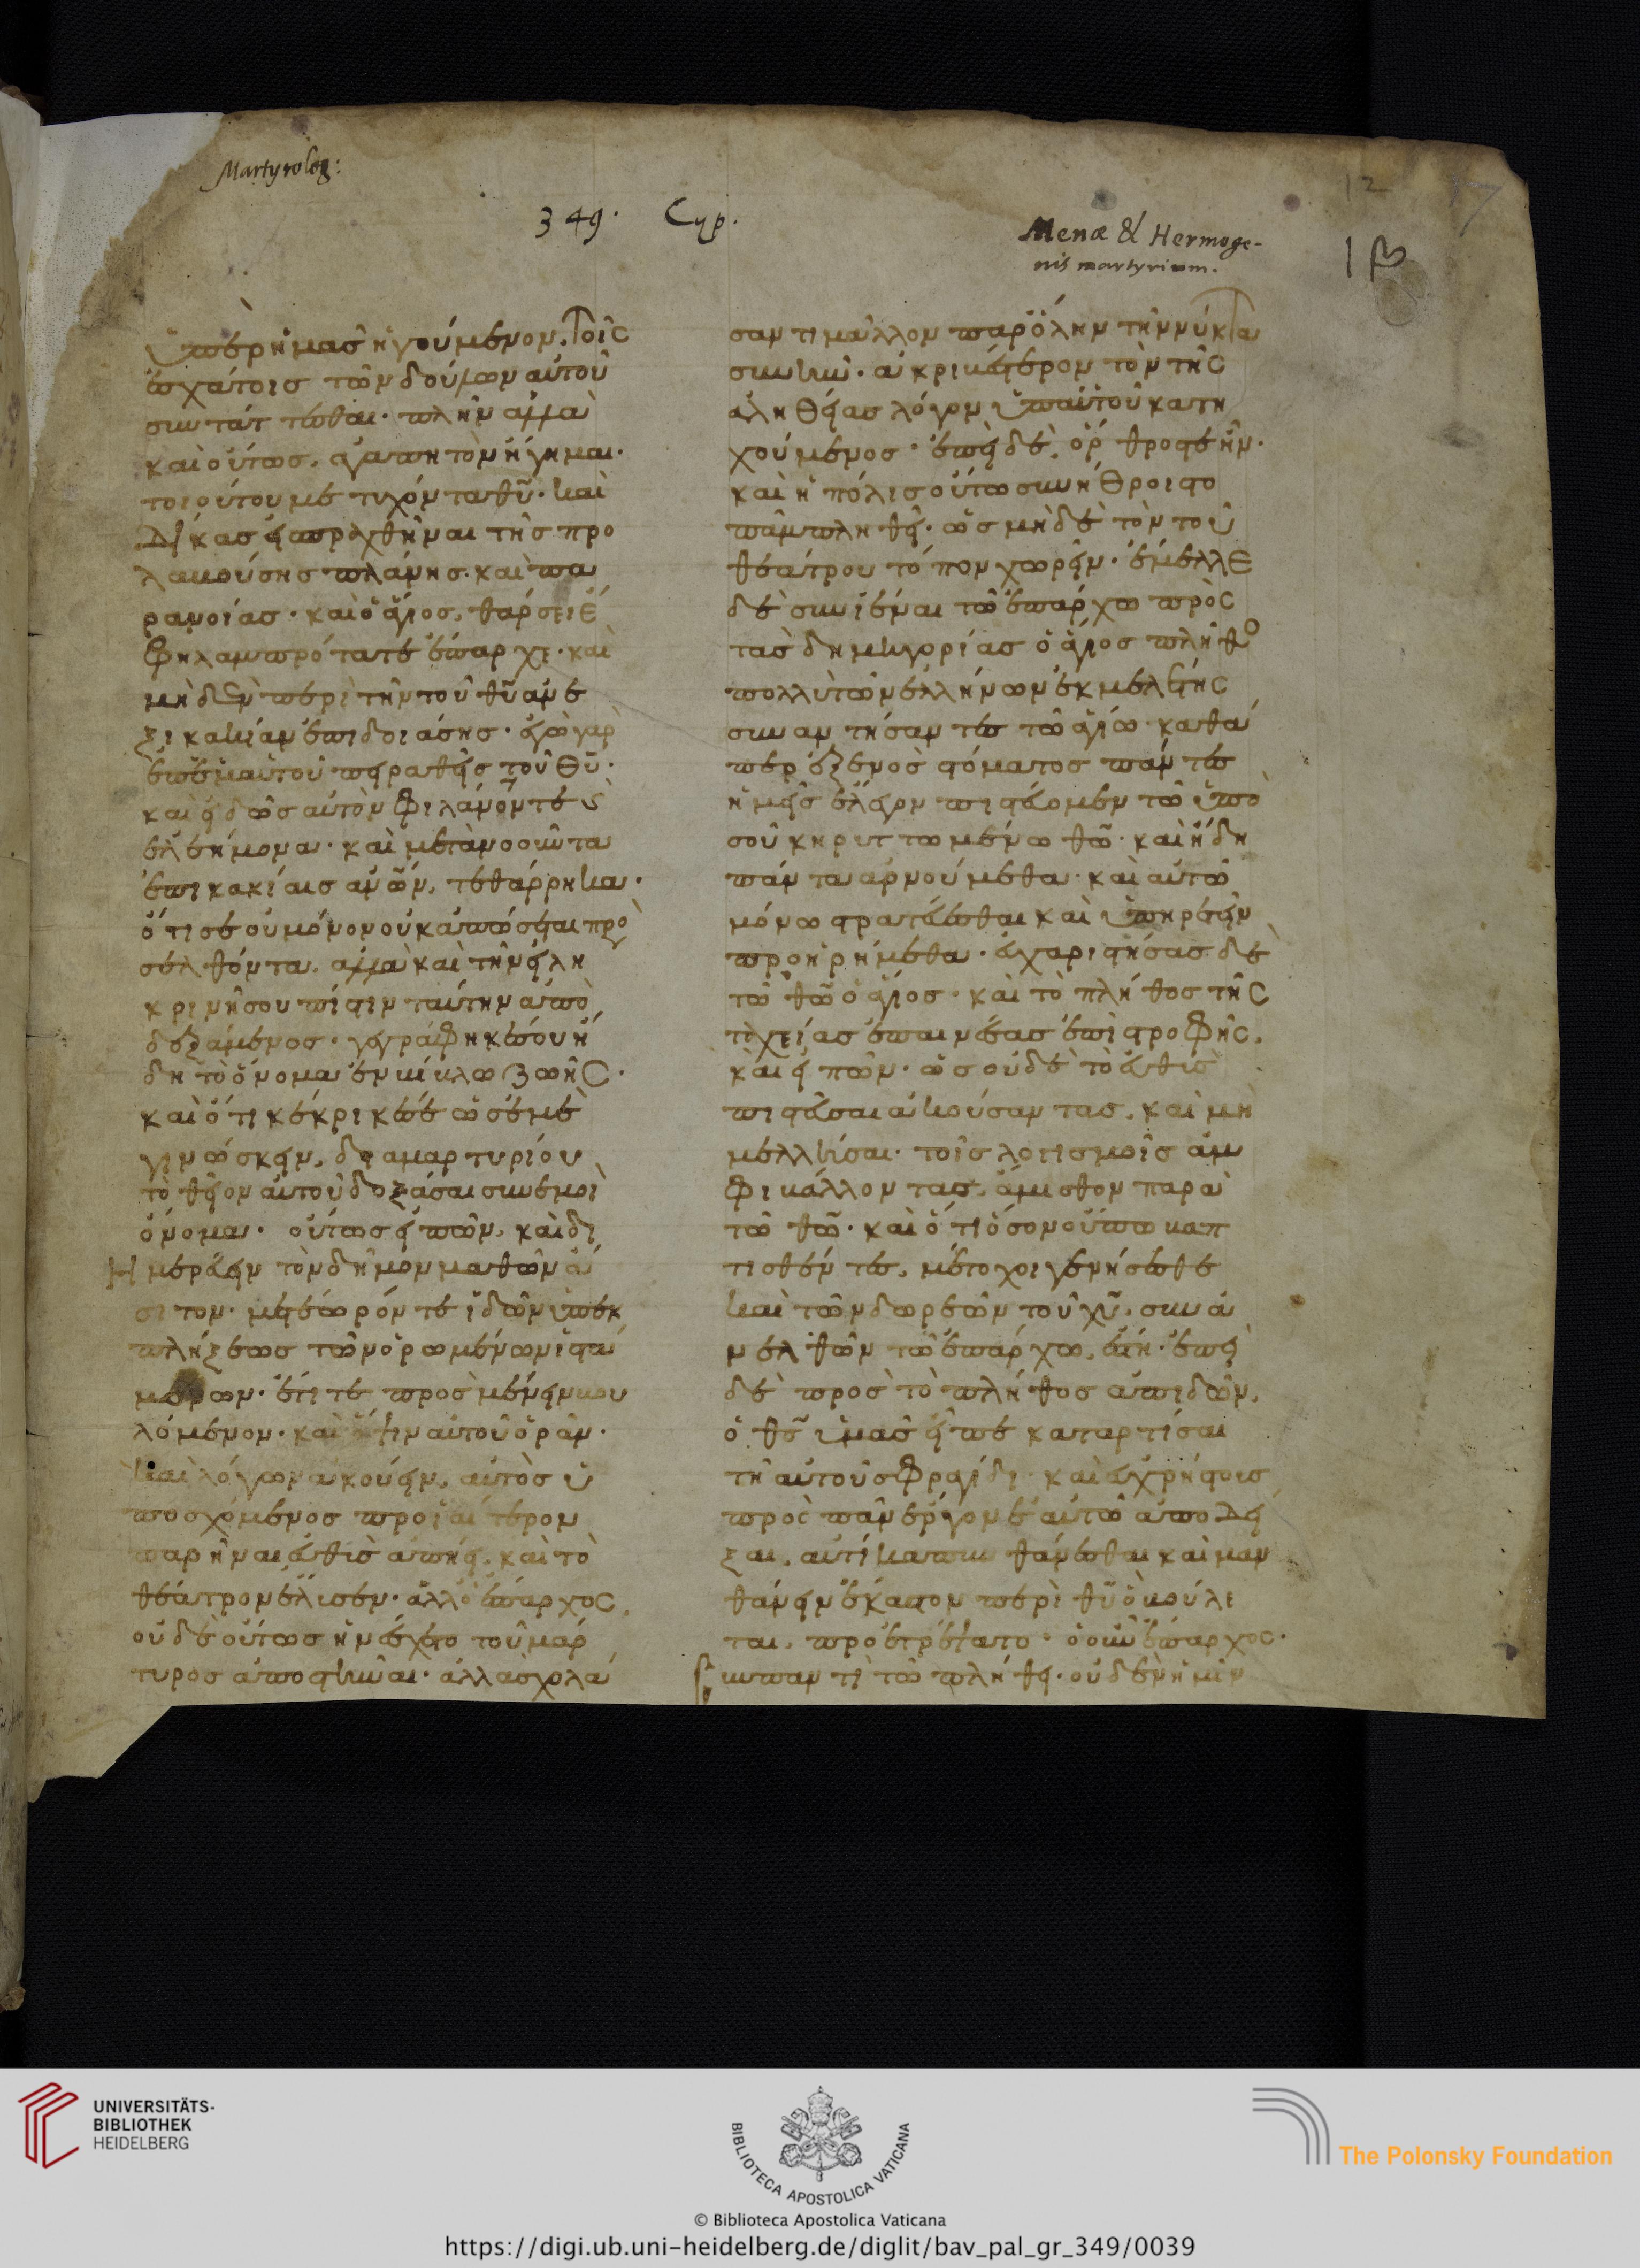 Martyrolog:
349. Cyp.
Menæ & Hermoge-
nis martyrium.
12
17
ιβ
ὑπὲρ ἡμᾶς ἡγούμενον. τοῖς
ἐσχάτοις τῶν δούλων αὐτοῦ
συντάττεσθαι· πλὴν ἀλλὰ
καὶ οὕτως, ἀγαπητὸν ἥγημαι·
τοιούτου με τυχόντα θῦ· καὶ
δίκας εἰσπραχθῆναι τῆς προ
λαβούσης πλάνης καὶ πα
ρανοίας· καὶ ὁ ἅγιος, θάρσει ἔ
φη λαμπρότατε ἔπαρχε· καὶ
μηδὲν περὶ τὴν τοῦ θῦ ἀνε
ξικακίαν ἐπιδοιάσης· ἐγὼ γὰρ
ἐπ ἐμαυτοῦ πειραθεὶς τοῦ θῦ·
καὶ εἰδὼς αὐτὸν φιλάνον τὲ καὶ
ἐλεήμονα· καὶ μετανοοῦντα
ἐπὶ κακίαις ἀνῶν, τεθάρρηκα·
ὅτι σε οὐ μόνον οὐκ ἀπώσεται προ
σελθόντα, ἀλλὰ καὶ τὴν εἰλι
κρινῆ σου πίστιν ταύτην ἀπο
δεξάμενος· γέγραφη κέ σου ἤ
δη τὸ ὄνομα ἐν βίβλω ζωῆς·
καὶ ὅτι κέκρικέ σε ὡς ἐμὲ
γινώσκειν, δια μαρτυρίου
τὸ θεῖον αὐτοῦ δοξάσαι σὺν ἐμοὶ
ὄνομα· οὕτως εἰπὼν, καὶ δι
ημερεύειν τὸν δῆμον μαθὼν ἄ
σιτον· μετέωρόν τε ἰδὼν ὑπ ἐκ
πλήξεως τῶν ὁρωμένων ἱστά
μενον· ἔτι τὲ προσμένειν βου
λόμενον· καὶ ὄψιν αὐτοῦ ὁρᾶν·
καὶ λόγων ἀκούειν, αὐτὸς ὑ
ποσχόμενος πρωϊαίτερον
παρῆναι αὖθις ἀπήει, καὶ τὸ
θέατρον ἔλυσεν· ἀλλ ὁ ἔπαρχος,
οὐδὲ οὕτως ἠνέσχετο τοῦ μάρ
τυρος ἀποστῆναι· ἀλλὰ σχολά
σαντι μᾶλλον παρ ὅλην τὴν νύκτα
συνῆν· ἀκριβέστερον τὸν τῆς
ἀληθείας λόγον ὑπ αὐτοῦ κατη
χούμενος· ἐπεὶ δὲ, ὄρθρος τε ἦν·
καὶ ἡ πόλις οὕτω συνήθροιστο
πᾶν πληθεῖ· ὡς μηδὲ τὸν τοῦ
θεάτρου τόπον χωρεῖν· ἔμελλε
δὲ συνιέναι τῶ ἐπάρχω πρὸς
τὰς δημηγορίας ὁ ἅγιος πλῆθο
πολλὺ τῶν ἑλλήνων ἐκ μελέτης
συναντήσαντες τῶ ἁγίω καθά
περ ἐξ ἑνὸς στόματος πάντες
ἡμεῖς ἔλεγον πιστεύομεν τῶ ὑπὸ
σοῦ κηρυττωμένω θῶ· καὶ ἤδη
πάντα ἀρνούμεθα· καὶ αὐτῶ
μόνω στρατεύεσθαι καὶ ὑπηρετεῖν
προηρήμεθα· εὐχαριστήσας δὲ
τῶ θῶ ὁ ἅγιος· καὶ τὸ πλῆθος τῆς
τοχείας ἐπαινέσας ἐπιστροφῆς,
καὶ εἰπὼν· ὡς οὐδὲ τὸ εὐθὺς
πιστεῦσαι ἀκούσαντας, καὶ μὴ
μελλῆσαι· τοῖς λογισμοῖς ἀμ
φιβάλλοντας, ἄμισθον παρὰ
τῶ θῶ· καὶ ὅτι ὅσον οὔπω βαπ
τισθέντες, μέτοχοι γενήσεσθε
καὶ τῶν δωρεῶν τοῦ χῦ, συνα
νελθὼν τῶ ἐπάρχω, ἔστη· ἐπεὶ
δὲ προς τὸ πλῆθος ἀπιδὼν,
ὁ θς ὑμᾶς εἶπε καταρτίσαι
τῆ αὐτοῦ σφραγίδι καὶ εὐχρήστους
πρὸς πᾶν ἔργον ἑαυτῶ ἀποδεῖ
ξαι, αὐτίκα πυνθάνεσθαι καὶ μαν
θάνειν ἕκαστον περὶ θῦ ὃ βούλε
ται, προετρέψατο· ὁ οὖν ἔπαρχος·
σύμπαντι τῶ πλήθει· οὐδὲν ἡμῖν
UNIVERSITÄTS-
BIBLIOTHEK
HEIDELBERG
BIBLIOTECA APOSTOLICA VATICANA
The Polonsky Foundation
© Biblioteca Apostolica Vaticana
https://digi.ub.uni-heidelberg.de/diglit/bav_pal_gr_349/0039